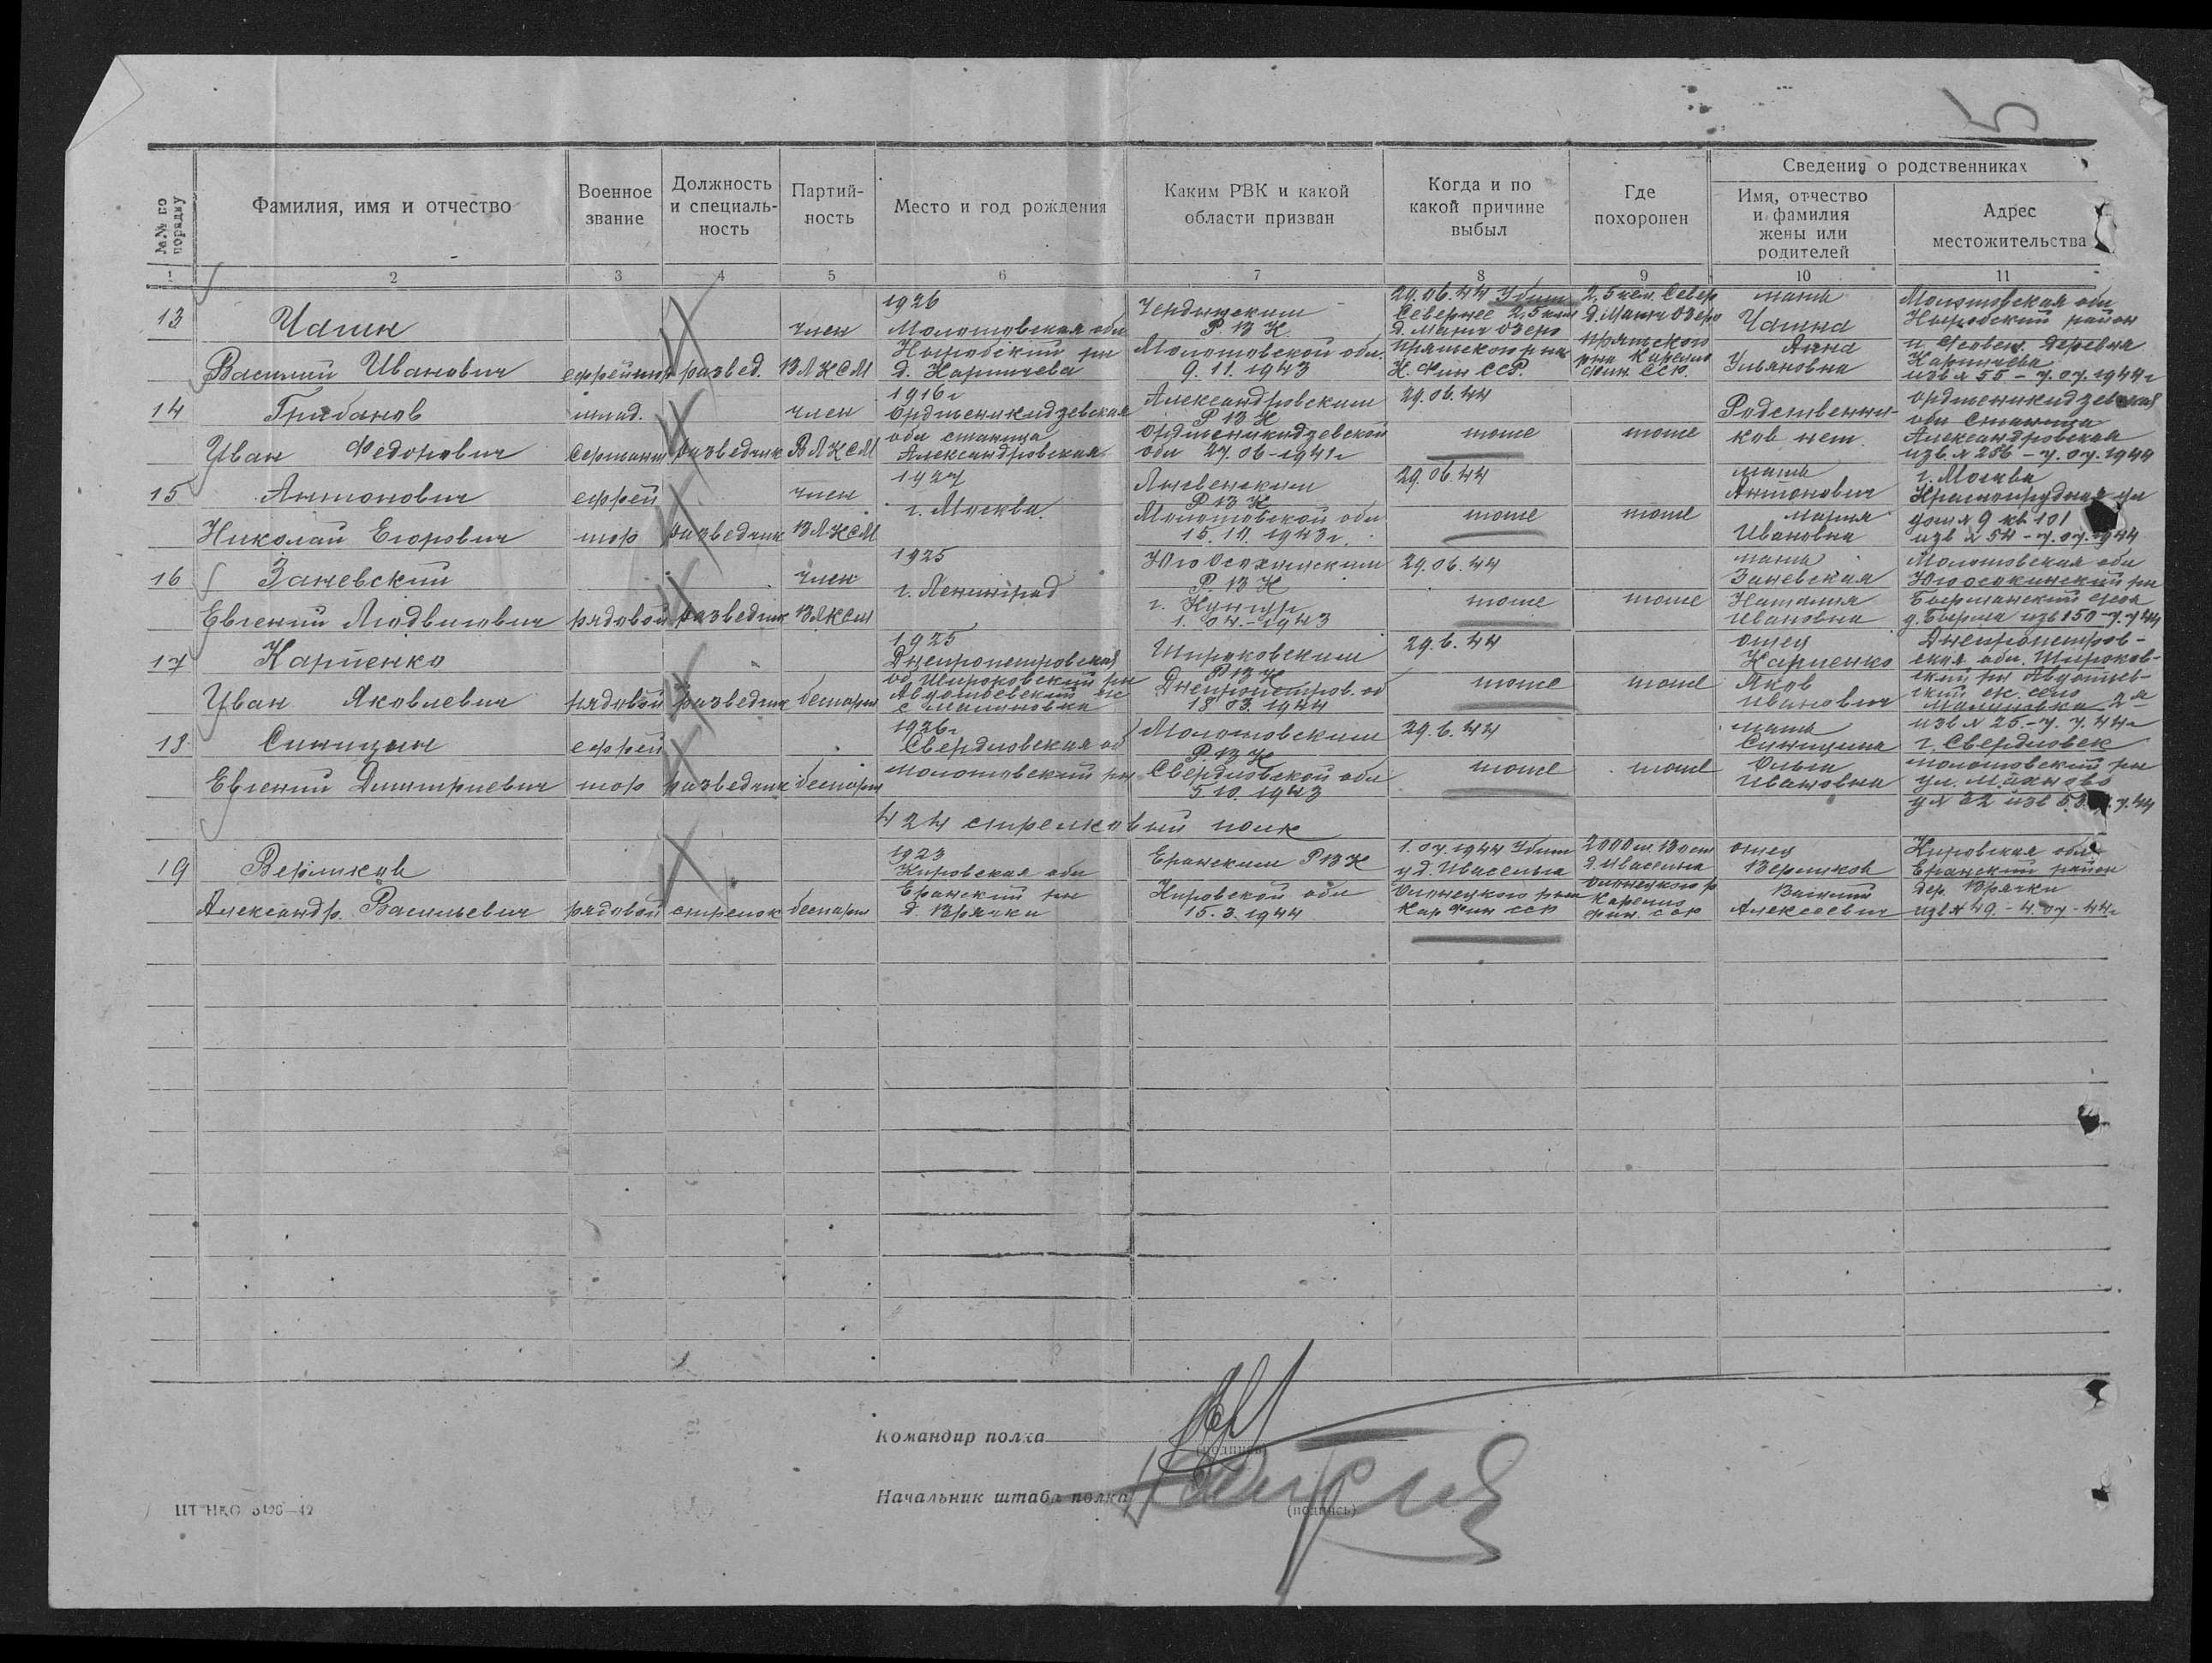 5
№№ по порядку
Фамилия, имя и отчество
Военное звание
Должность и специаль-
ность
Партий-
ность
Место и год рождения
Каким РВК и какой
области призван
Когда и по
какой причине
выбыл
Где
похоронен
Сведения о родственниках
Имя, отчество
и фамилия
жены или
родителей
Адрес
местожительства
1 2 3 4 5 6 7 8 9 10 11
13
Чагин
Василий Иванович
ефрейтор
развед.
член
ВЛКСМ
1926
Молотовская обл
Ныробский рн
Чердынским
РВК
Молотовской обл.
9.11.1943
29.06.44 Убит
Севернее 2,5 клм
Пряжского р на
К. Фин ССР.
2,5 клм. Север
Пряжского
рна Карело
Фин. ССР.
мать
Чагина
Анна
Ульяновна
Молотовская обл
Ныробский район
деревня
изв № 55 – 7.07.1944г
14
Грибанов
Иван Федорович
млад.
Сержант
разведчик
член
ВЛКСМ
1916г
Орджоникидзевская
обл станица
Александровская
Александровским
РВК
Орджоникидзевской
обл 27.06-1941г
29.06.44
тоже
тоже
Родственни-
ков нет.
Орджоникидзевская
обл Станица
Александровская
изв № 286 – 7.07.1944
15
Антонович
Николай Егорович
ефрей
тор
разведчик
член
ВЛКСМ
1927
г. Москва.
Лысвенским
РВК
Молотовской обл
15.10.1943г.
29.06.44
тоже
тоже
мать
Антонович
Мария
Ивановна
г. Москва
Краснопрудная ул
дом № 9 кв 101
изв № 54 – 7.07.1944
16
Заневский
Евгений Людвигович
рядовой
разведчик
член
ВЛКСМ
1925
г. Ленинград
РВК
г. Кунгур
1.04.-1943
29.06.44
тоже
тоже
мать
Заневская
Наталия
Ивановна
Молотовская обл
Югоосокинский рн
17
Карпенко
Иван Яковлевич
рядовой
разведчик
беспарт
1925
Днепропетровская
об Широковский рн
с Малиновка
Широковским
РВК
Днепропетров. об
18 03.1944
29.6.44
тоже
тоже
отец
Карпенко
Яков
Иванович
Днепропетров-
ская обл. Широков-
изв № 25 – 7.7.44г
18
Синицын
Евгений Дмитриевич
ефрей
тор
разведчик
беспарт
1926г
Свердловская об
Молотовский рн
Молотовским
РВК
Свердловской обл
5.10.1943
29.6.44
тоже
тоже
мать
Синицина
Ольга
Ивановна
г. Свердловск
Молотовский рн
424 стрелковый полк
19
Верликов
Александр Васильевич
рядовой
стрелок
беспарт
1923
Кировская обл
Еранский рн
д. Врячки
Еранским РВК
Кировской обл
15.3.1944
1.07.1944 Убит
Олонецкого рна
Кар Фин ССР
2000 м. Вост
Олонецкого р
Карело
Фин. ССР
отец
Верликов
Василий
Алексеевич
Кировская обл
Еранский район
дер Врячки
изв № 49. – 4.07-44г
Командир полка
(подпись)
Начальник штаба полка
(подпись)